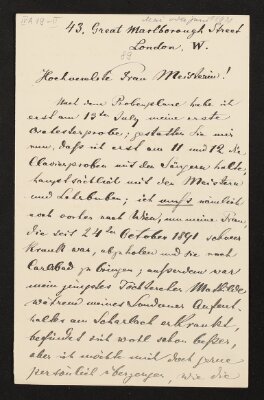 43. Great Marlborough Street
London, W.
Hochverehrte Frau Meisterin!
Nach dem Probenplane habe ich
erst am 13ten July meine erste
Orchesterprobe; gestatten Sie mir
nun, daß ich erst am 11 und 12 die
Clavierproben mit den Sängern halte,
hauptsächlich mit den Meistern
und Lehrbuben; ich muß nämlich
noch vorher nach Wien, um meine Frau,
die seit 24ten October 1891 schwer
krank war, abzuholen und sie nach
Carlsbad zu bringen; außerdem war
mein jüngstes Töchterchen Mathilde
während meines Londoner Aufent-
haltes am Scharlach erkrankt,
befindet sich wohl schon besser,
aber ich möchte mich doch gerne
persönlich überzeugen, wie die